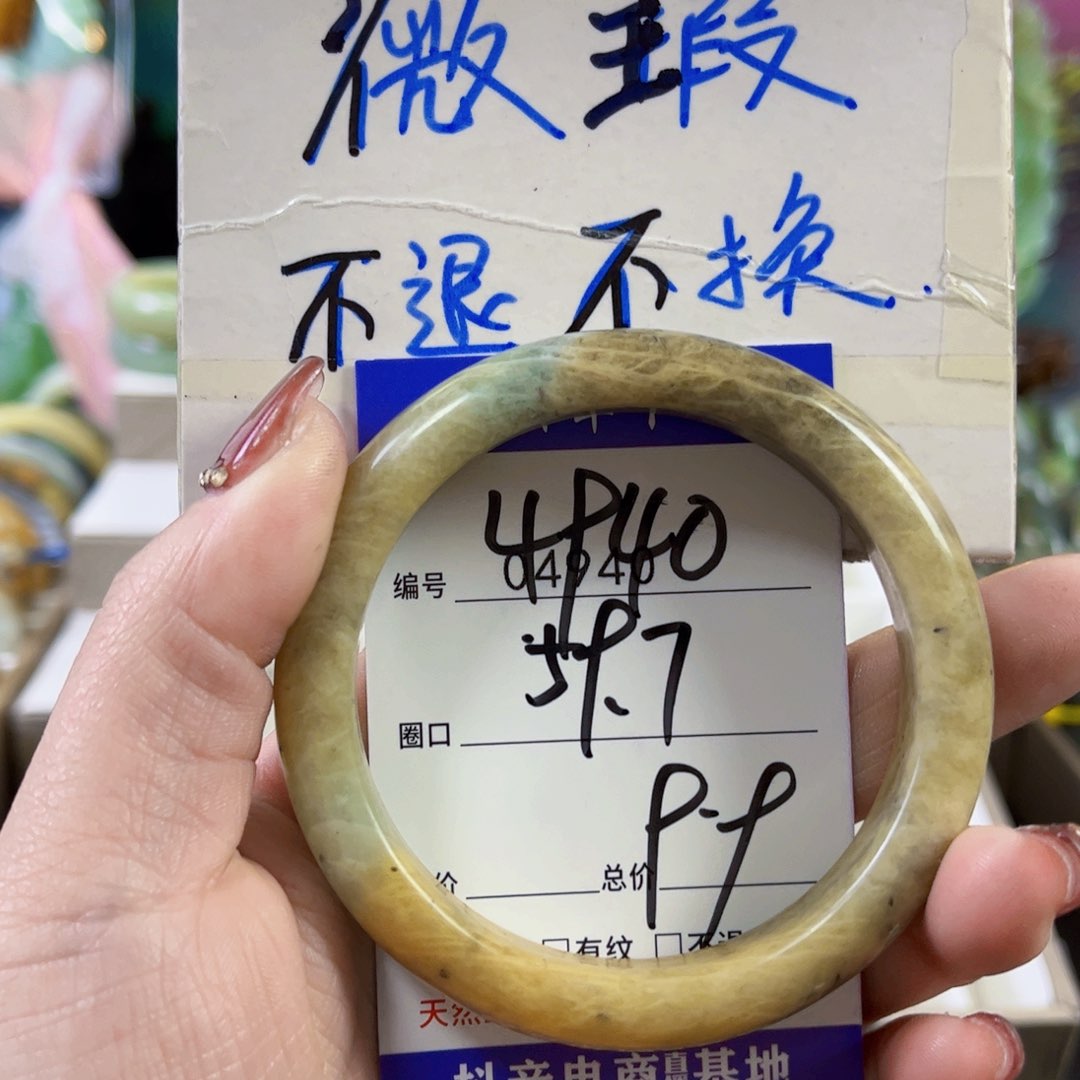 微瑕
不退不换..
4940
编号 04940
59.7
圈口
9.9
价 总价
□有纹 □不退
天然
抖音电商直播基地